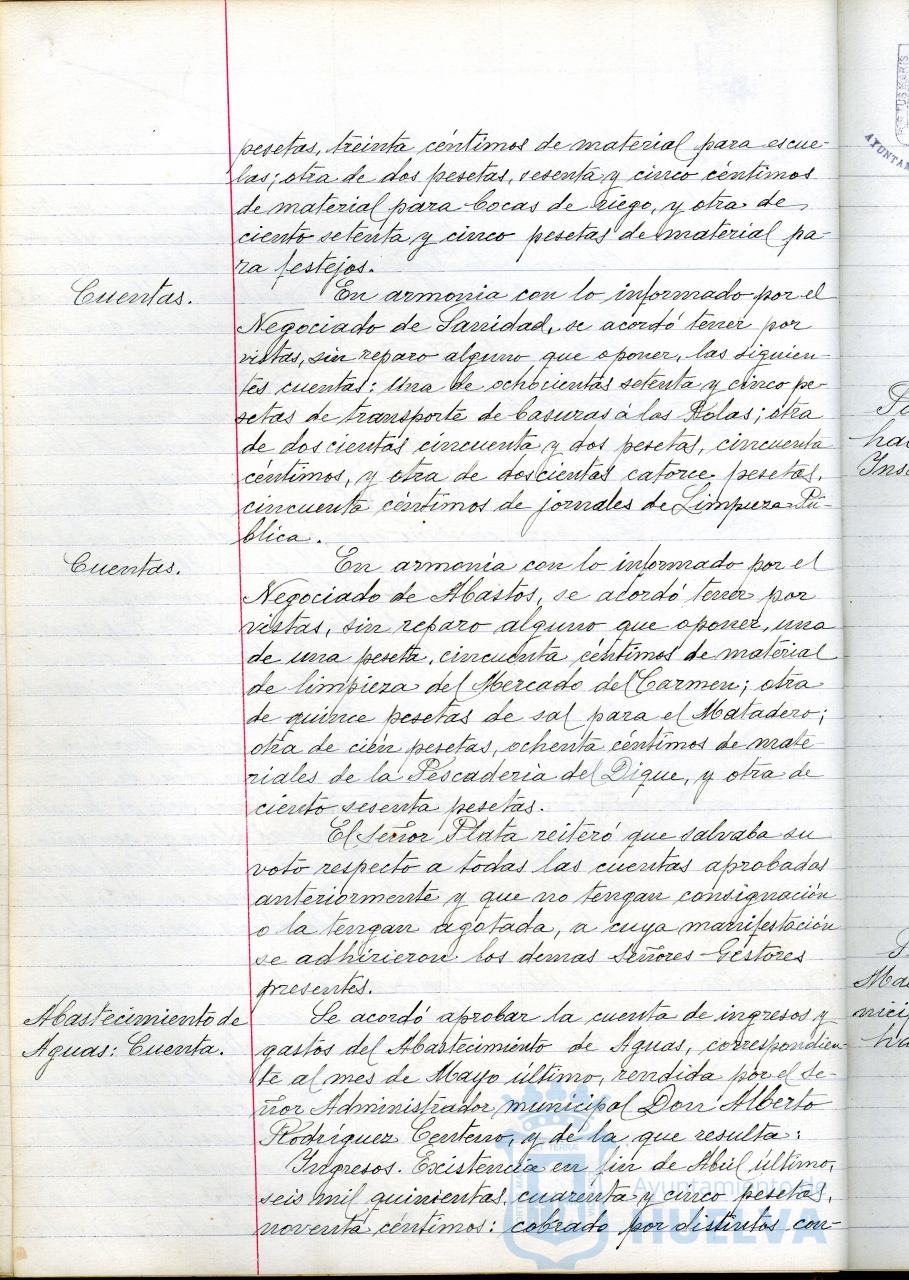 pesetas, treinta céntimos de material para escue-
las; otra de dos pesetas, sesenta y cinco céntimos
de material para bocas de riego, y otra de
ciento setenta y cinco pesetas de material pa-
ra festejos.
Cuentas.
En armonia con lo informado por el
Negociado de Sanidad, se acordó tener por
vistas, sin reparo alguno que oponer, las siguien-
tes cuentas: Una de ochocientas setenta y cinco pe-
setas de transporte de basuras á las Kolas; otra
de doscientas cincuenta y dos pesetas, cincuenta
céntimos, y otra de doscientas catorce pesetas,
cincuenta céntimos de jornales de Limpieza Pú-
blica.
Cuentas.
En armonía con lo informado por el
Negociado de Abastos, se acordó tener por
vistas, sin reparo alguno que oponer, una
de una peseta, cincuenta céntimos de material
de limpieza del Mercado del Carmen; otra
de quince pesetas de sal para el Matadero;
otra de cién pesetas, ochenta céntimos de mate
riales de la Pescaderia del Dique, y otra de
ciento sesenta pesetas.
El señor Plata reiteró que salvaba su
voto respecto a todas las cuentas aprobadas
anteriormente y que no tengan consignación
o la tengan agotada, a cuya manifestación
se adhirieron los demas Señores Gestores
presentes.
Abastecimiento de
Aguas: Cuenta.
Se acordó aprobar la cuenta de ingresos y
gastos del Abastecimiento de Aguas, correspondien-
te al mes de Mayo último, rendida por el Se-
ñor Administrador municipal Don Alberto
Rodríguez Centeno, y de la que resulta:
Ingresos. Existencia en fin de Abril último,
seis mil quinientas, cuarenta y cinco pesetas,
noventa céntimos: cobrado por distintos con-
Ayuntamiento de
HUELVA